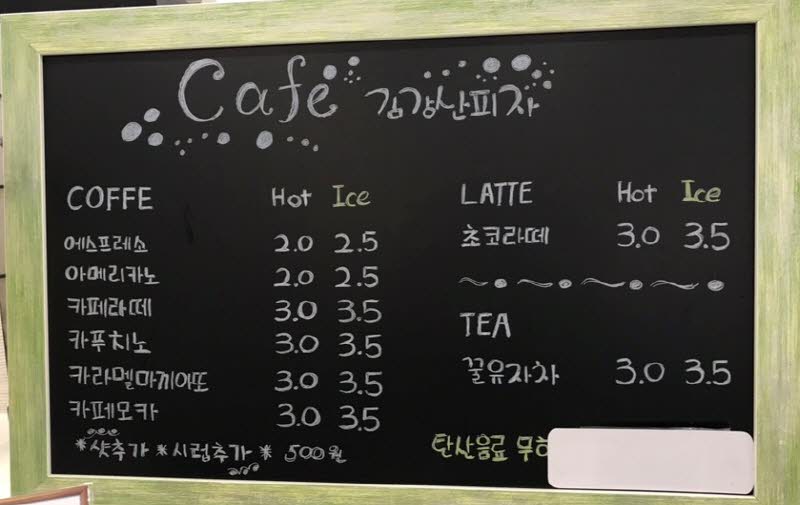 Cafe 김강산피자
COFFE Hot Ice
에스프레소 2.0 2.5
아메리카노 2.0 2.5
카페라떼 3.0 3.5
카푸치노 3.0 3.5
카라멜마끼아또 3.0 3.5
카페모카 3.0 3.5
*샷추가 *시럽추가 * 500원
LATTE Hot Ice
초코라떼 3.0 3.5
TEA
꿀유자차 3.0 3.5
탄산음료